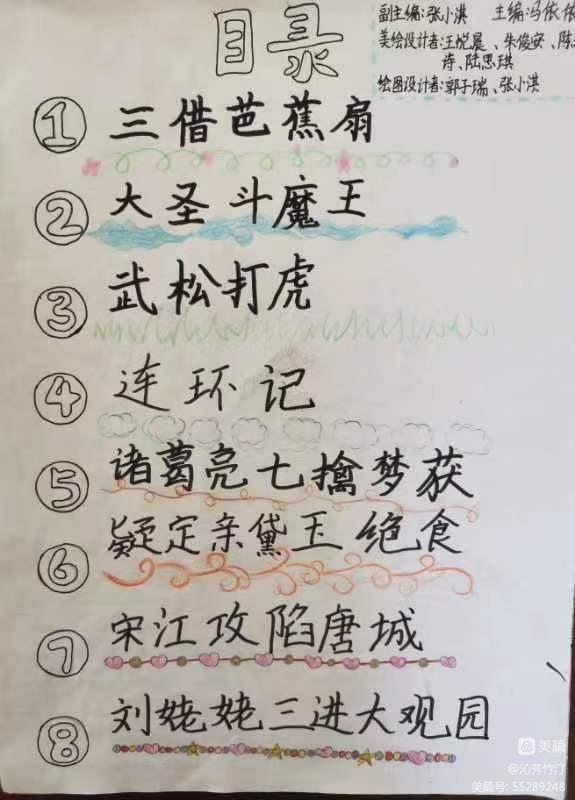 目录
副主编:张小淇 主编:冯依依
美绘设计者:王悦晨、朱俊安、陈
诗、陆思琪
绘图设计者:郭子瑞、张小淇
① 三借芭蕉扇
② 大圣斗魔王
③ 武松打虎
④ 连环记
⑤ 诸葛亮七擒梦获
⑥ 疑定亲黛玉绝食
⑦ 宋江攻陷唐城
⑧ 刘姥姥三进大观园
美篇
@沁芳竹汀
美篇号: 55289248